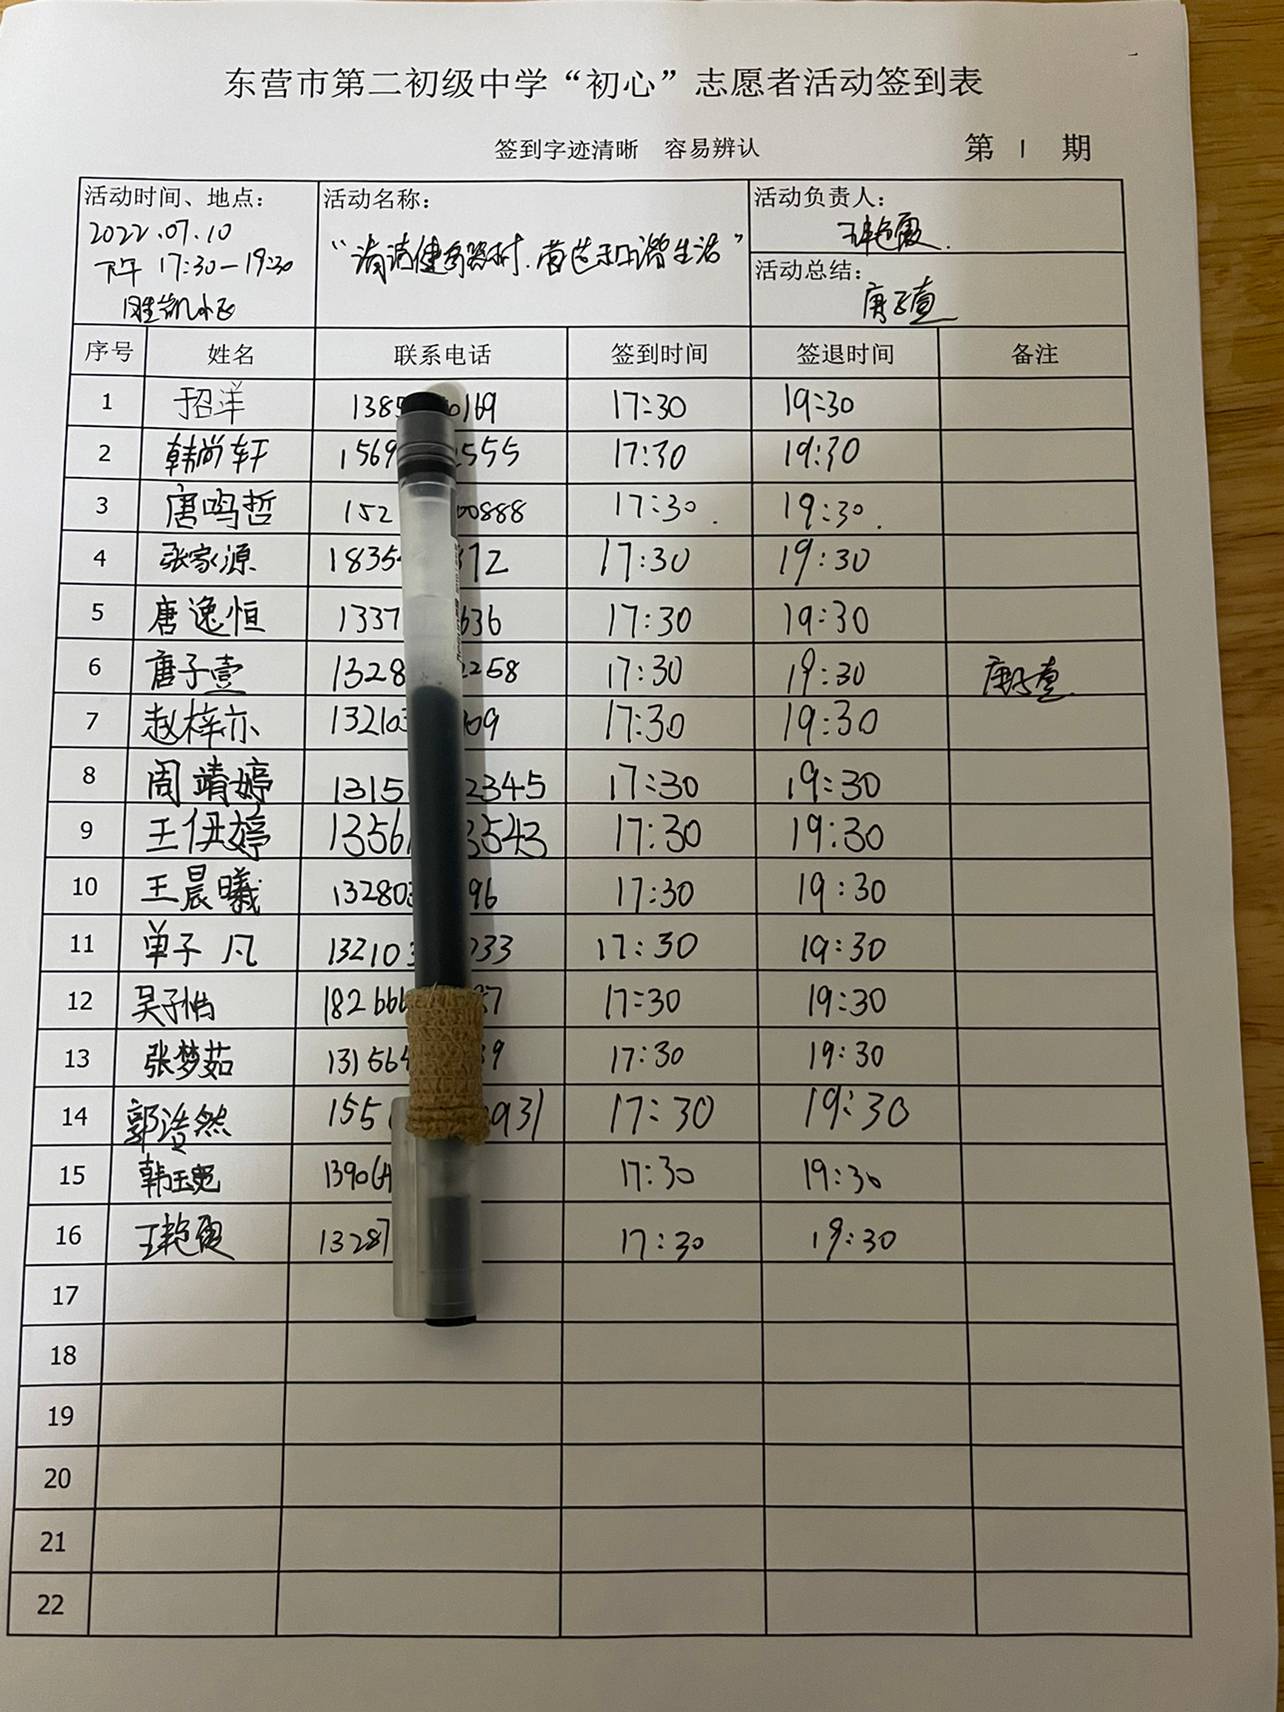 东营市第二初级中学“初心”志愿者活动签到表
签到字迹清晰 容易辨认 第 1 期
活动时间、地点: 活动名称: 活动负责人:
2022.07.10
下午 17:30—19:30
“清洁健身器材.营造和谐生活”
王艳霞.
活动总结:
唐子壹
序号 姓名 联系电话 签到时间 签退时间 备注
1 于招洋 17:30 19:30
2 韩尚轩 17:30 19:30
3 唐鸣哲 17:30. 19:30.
4 张家源 17:30 19:30
5 唐逸恒 17:30 19:30
6 唐子壹 17:30 19:30 唐子壹
7 赵梓亦 17:30 19:30
8 周靖婷 17:30 19:30
9 王伊婷 17:30 19:30
10 王晨曦 17:30 19:30
11 单子凡 17:30 19:30
12 吴子怡 17:30 19:30
13 张梦茹 17:30 19:30
14 郭浩然 17:30 19:30
15 17:30 19:30
16 王艳霞 17:30 19:30
17
18
19
20
21
22